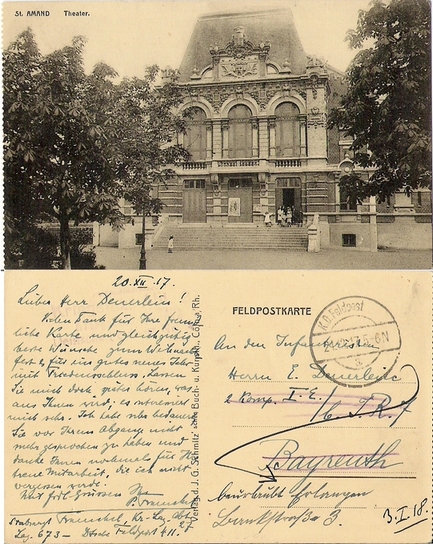 St. AMAND Theater.
20. XII. 17.
Lieber Herr Deuerlein!
Vielen Dank für Ihre freund
liche Karte und gleichzeitig
beste Wünsche zum Weihnachts
fest, für ein gutes neues Jahr
mit Friedensschluss. Lassen
Sie mich doch hören, was
aus Ihnen wird; es interessiert
mich sehr. Ich habe sehr bedauert
Sie vor Ihrem Abgang nicht
mehr gesprochen zu haben und
danke Ihnen nochmals für Ihre
treue Mitarbeit, die ich nicht
vergessen werde.
Mit Grüssen Ihr
Laz. 673 – Feldpost 411.
Verlag J. J. G. Schmitz Buch- u. Kunsth., Cöln a. Rh.
FELDPOSTKARTE
K.D. Feldpost
An den Infanteristen
Herrn E. Deuerlein
2 Komp. I. E.
Bayreuth
beurlaubt Erlangen
3. I. 18.